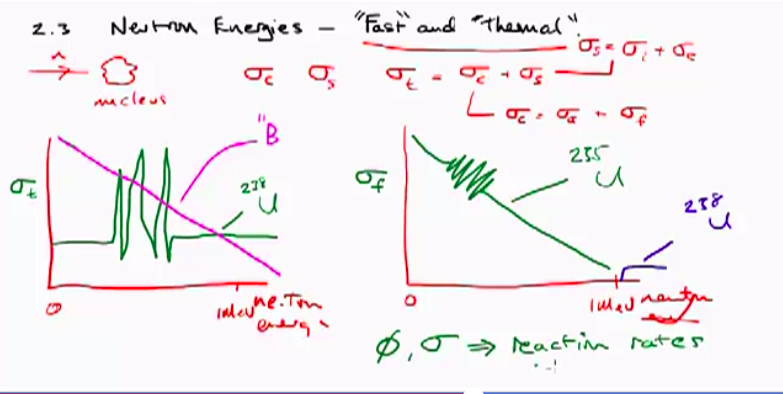 2.3 Neutron Energies - "Fast" and "Thermal".
n
nucleus
σc σs σt = σc + σs
σs = σi + σe
σc = σa + σf
σt
"B
238U
0
1MeV
neutron energy
σf
235U
238U
0
1MeV
neutron
φ, σ ⇒ reaction rates